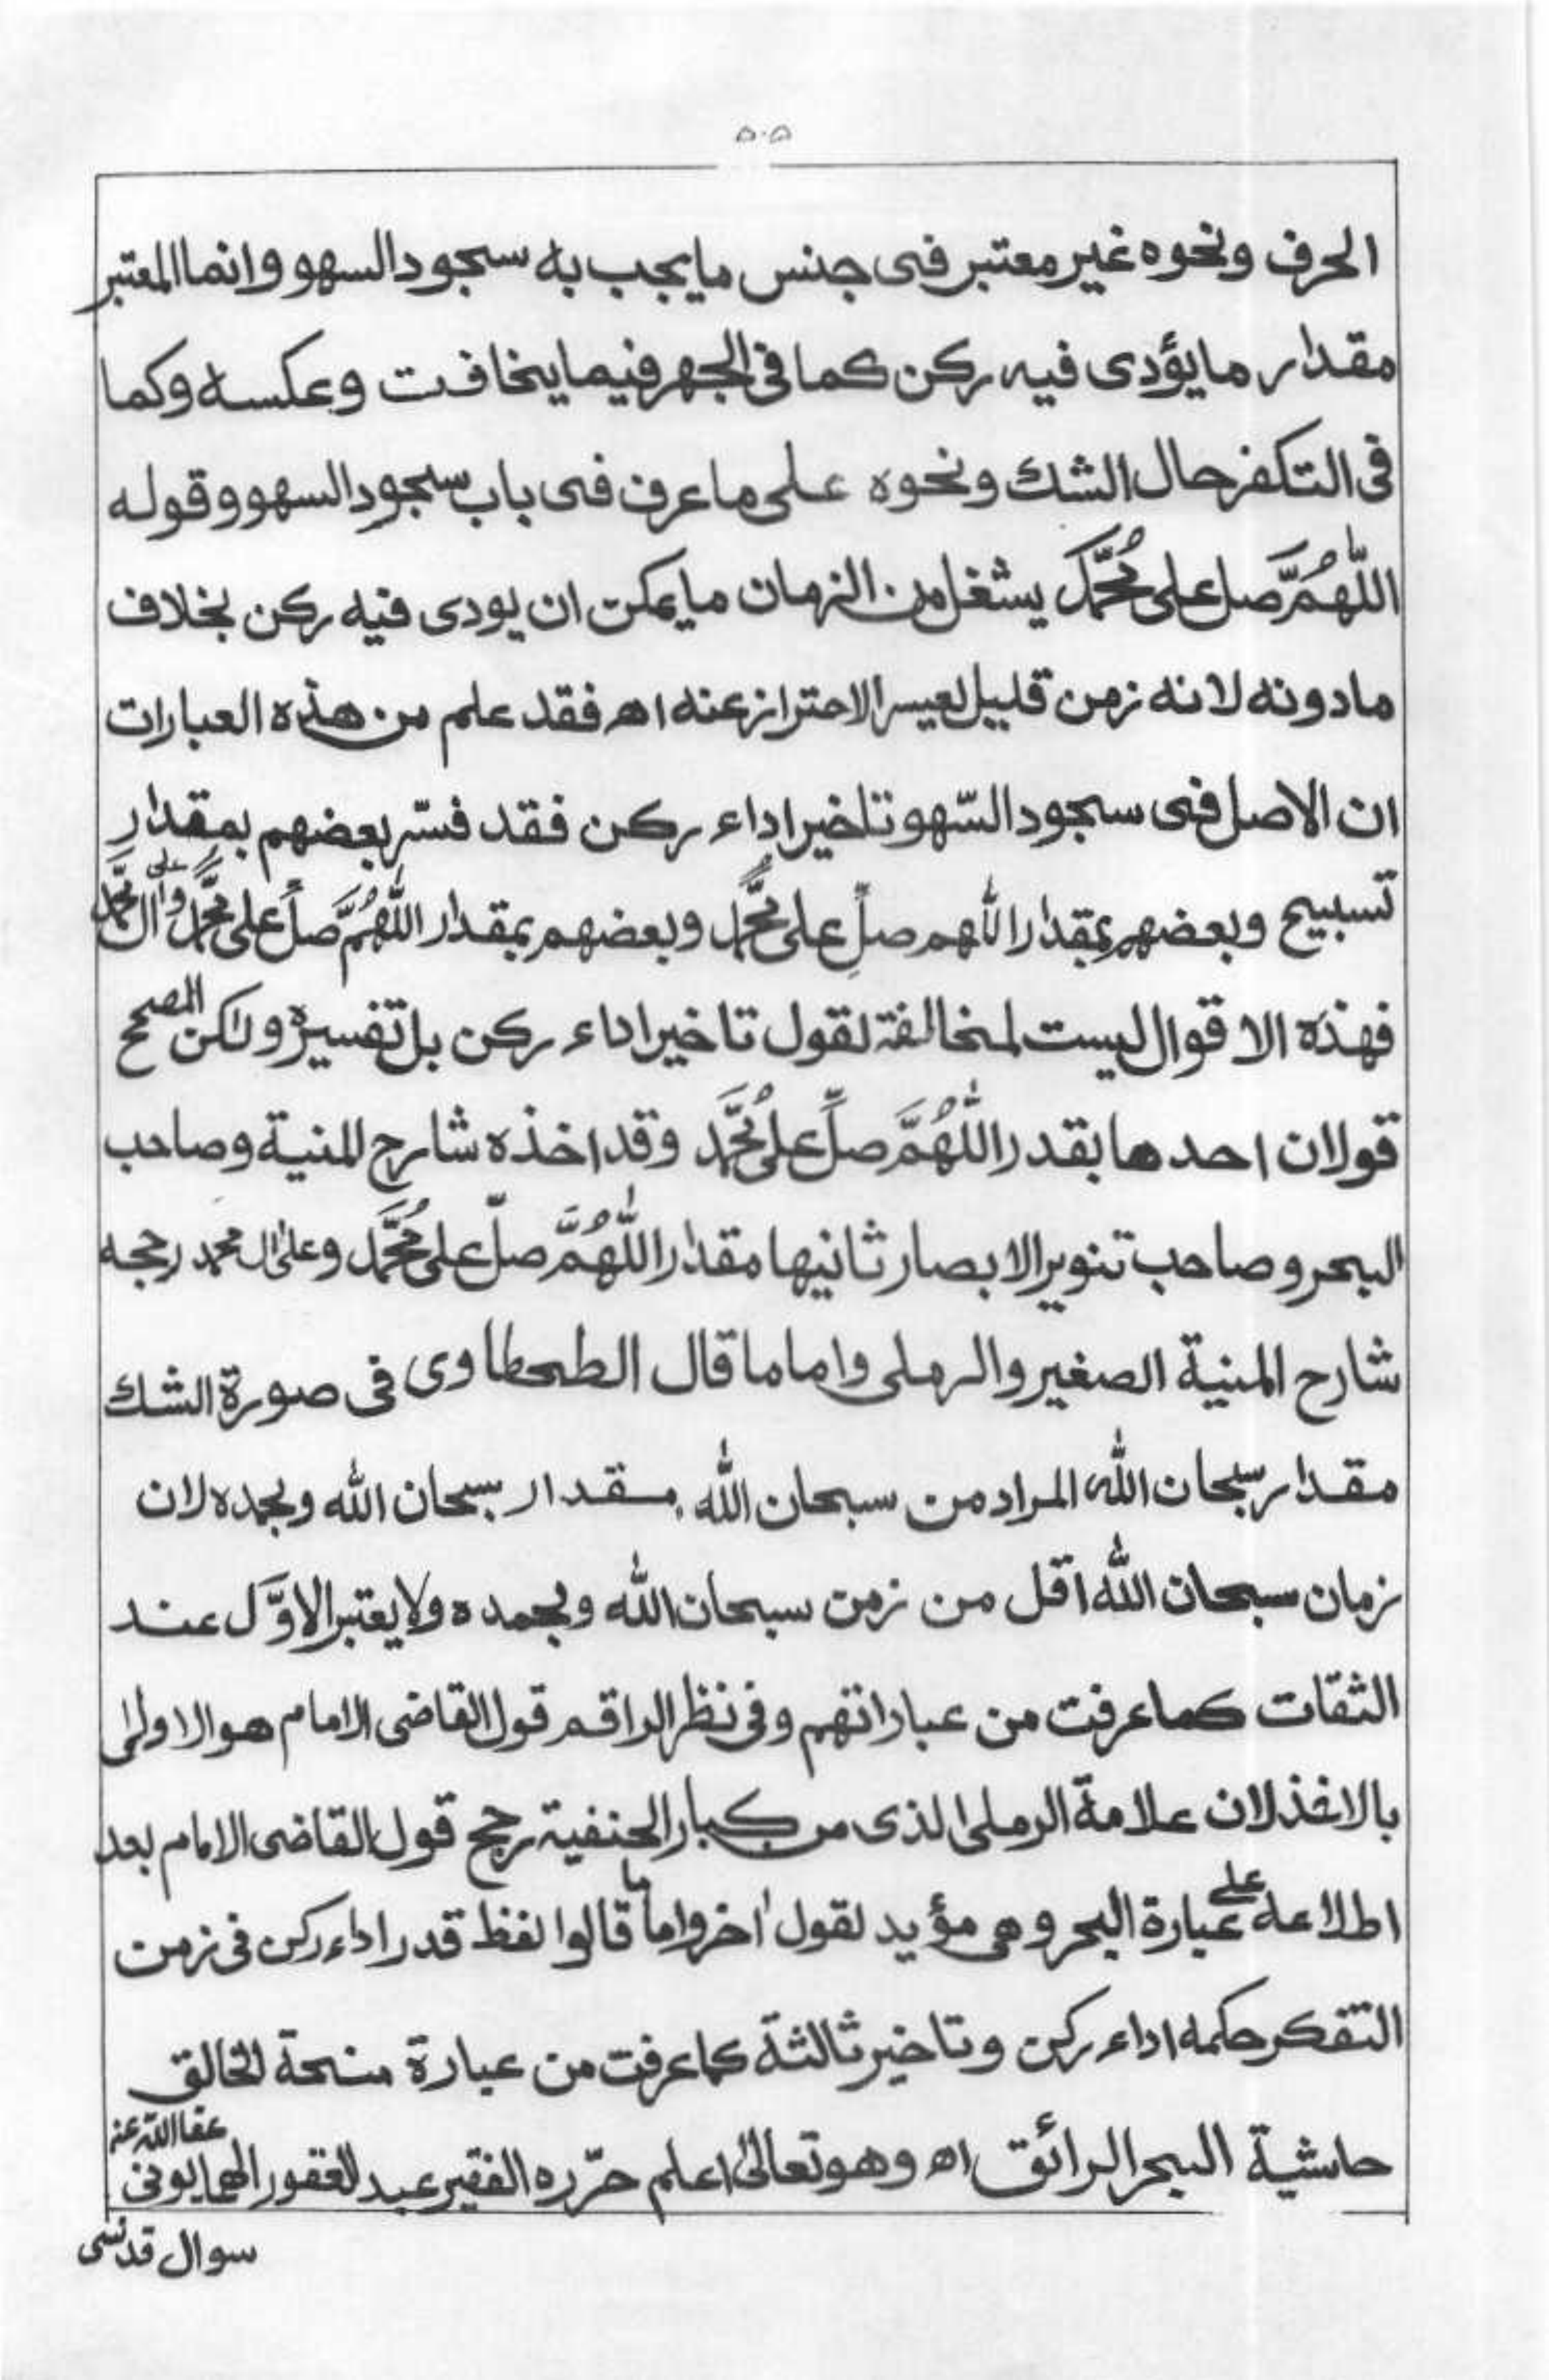 ۵۰۵
الحرف ونحوه غير معتبر فى جنس ما يجب به سجود السهو وانما المعتبر
مقدار ما يؤدى فيه ركن كما فى الجهر فيما يخافت وعكسه وكما
فى التكفر حال الشك ونحوه على ما عرف فى باب سجود السهو وقوله
اللّٰهُمَّ صل على مُحَمَّد يشغل من الزمان ما يمكن ان يودى فيه ركن بخلاف
مادونه لانه زمن قليل لعيسر الاحتراز عنه اھ فقد علم من هذه العبارات
ان الاصل فى سجود السّهو تاخير اداء ركن فقد فسّر بعضهم بمقدار
تسبيح وبعضهم بمقدار اللّٰهم صلِّ على محمَّدٍ وبعضهم بمقدار اللّٰهُمَّ صلِّ على محمَّدٍ وعلى اٰل محمَّد
فهذه الاقوال ليست لمخالفة لقول تاخير اداء ركن بل تفسيره ولكن المصحح
قولان احدها بقدر اللّٰهُمَّ صلِّ على مُحَمَّد وقد اخذه شارح المنية وصاحب
البحر وصاحب تنوير الابصار ثانيها مقدار اللّٰهُمَّ صلّ على مُحَمَّد وعلىٰ اٰل محمد رجحه
شارح المنية الصغير والرملى واما ما قال الطحطاوى فى صورة الشك
مقدار سبحان اللّٰه المراد من سبحان اللّٰه بمقدار سبحان اللّٰه وبحمده لان
زمان سبحان اللّٰه اقل من زمن سبحان اللّٰه وبحمده ولا يعتبر الاوَّل عند
الثقات كما عرفت من عباراتهم وفى نظر الراقم قول القاضى الامام هو الاولىٰ
بالاخذ لان علامة الرملى الذى من كبار الحنفية رجح قول القاضى الامام بعد
اطلاعه على عبارة البحر وهى مؤيد لقول اٰخر واما ما قالوا لفظ قدر اداء ركن فى زمن
التفكر حكمه اداء ركن وتاخير ثالثة كما عرفت من عبارة منحة الخالق
حاشية البحر الرائق اھ وهو تعالىٰ اعلم حرّره الفقير عبد الغفور الهمايونى عفا اللّٰه عنه
سوال قدسى